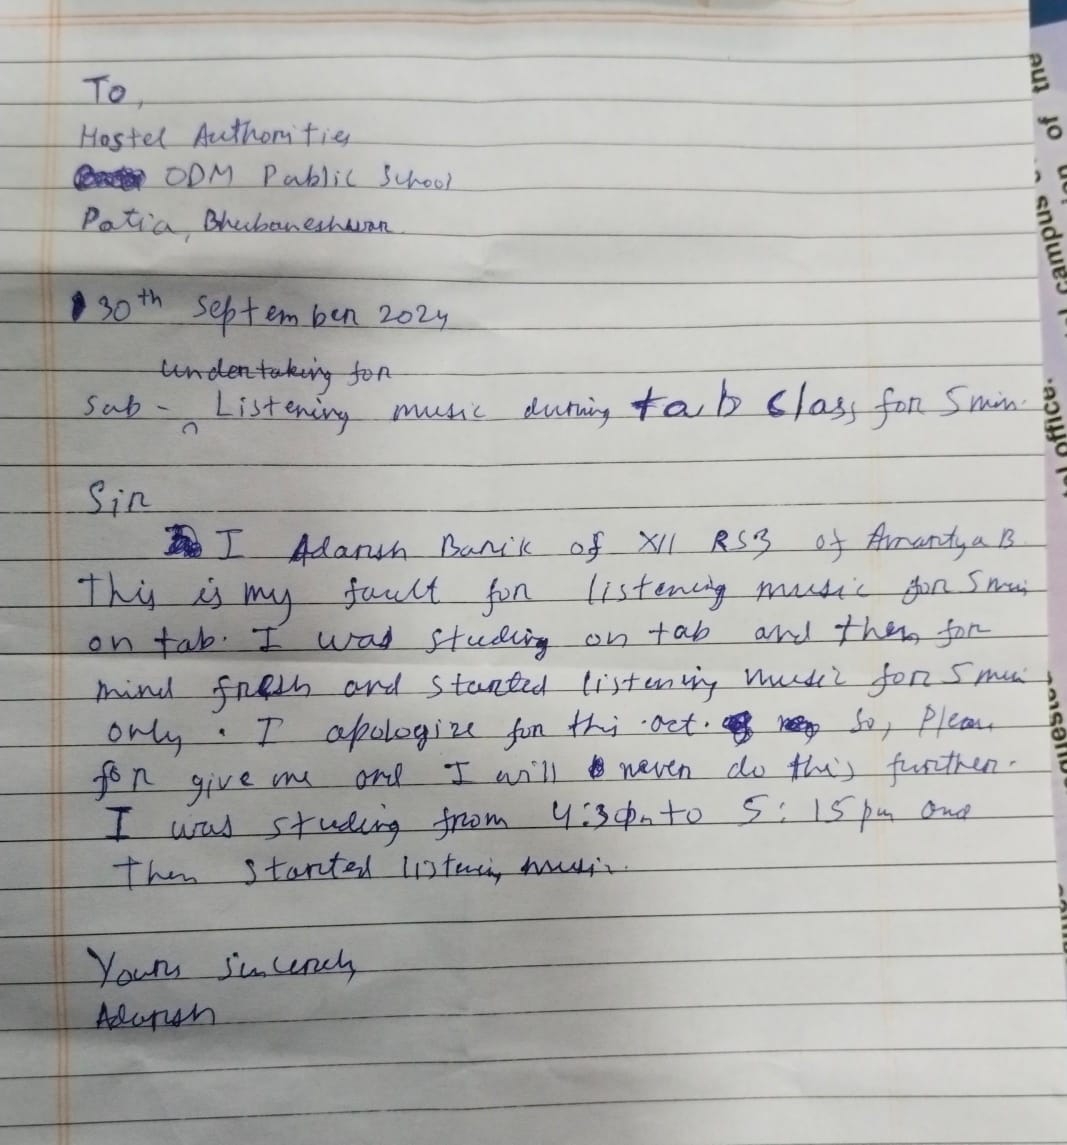 To,
Hostel Authorities
ODM Public School
Patia, Bhubaneshwar
30th September 2024
Undertaking for
Sub - Listening music during tab class for 5 min.
Sir
I Adarsh Barik of XII RS3 of Amartya B
This is my fault for listening music for 5 min
on tab. I was studing on tab and then for
mind fresh and started listening music for 5 min
only. I apologize for this act. So, Please
for give me and I will never do this further.
I was studing from 4:30pm to 5:15 pm and
then started listening music.
Yours sincerely
Adarsh
the
of
campus
office.